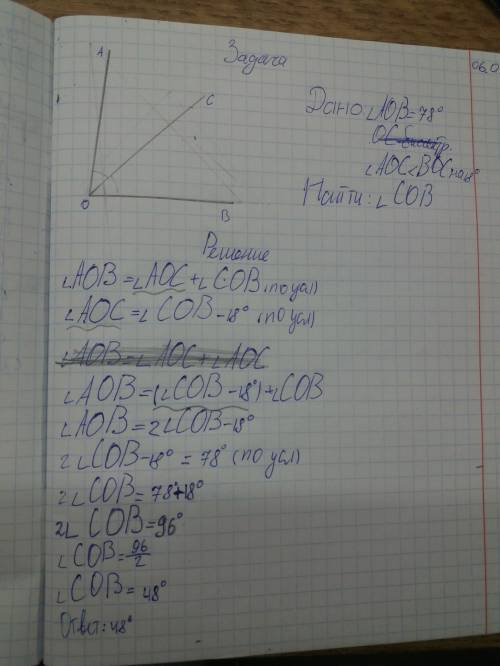 Задача
06.0
A
C
O
B
Дано: ∠AOB=78°
OC-биссектр.
∠AOC<BOC на 18°
Найти: ∠COB
Решение
∠AOB=∠AOC+∠COB (по усл)
∠AOC=∠COB-18° (по усл)
∠AOB=∠AOC+∠AOC
∠AOB=(∠COB-18°)+∠COB
∠AOB=2∠COB-18°
2∠COB-18°=78° (по усл)
2∠COB=78°+18°
2∠COB=96°
∠COB=96/2
∠COB=48°
Ответ: 48°